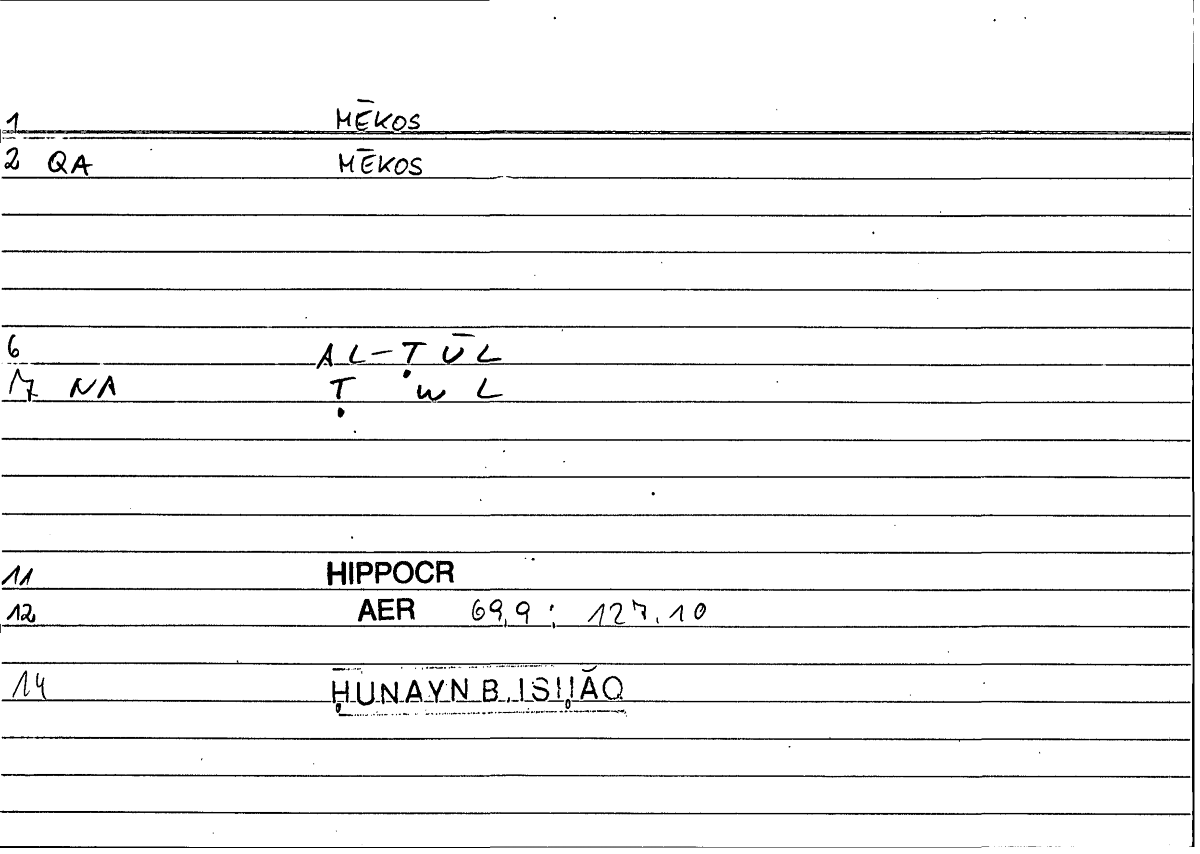 1 MĒKOS
2 QA MĒKOS
6 AL-ṬŪL
7 NA Ṭ W L
11 HIPPOCR
12 AER 69,9; 127.10
14 ḤUNAYN B. ISḤĀQ